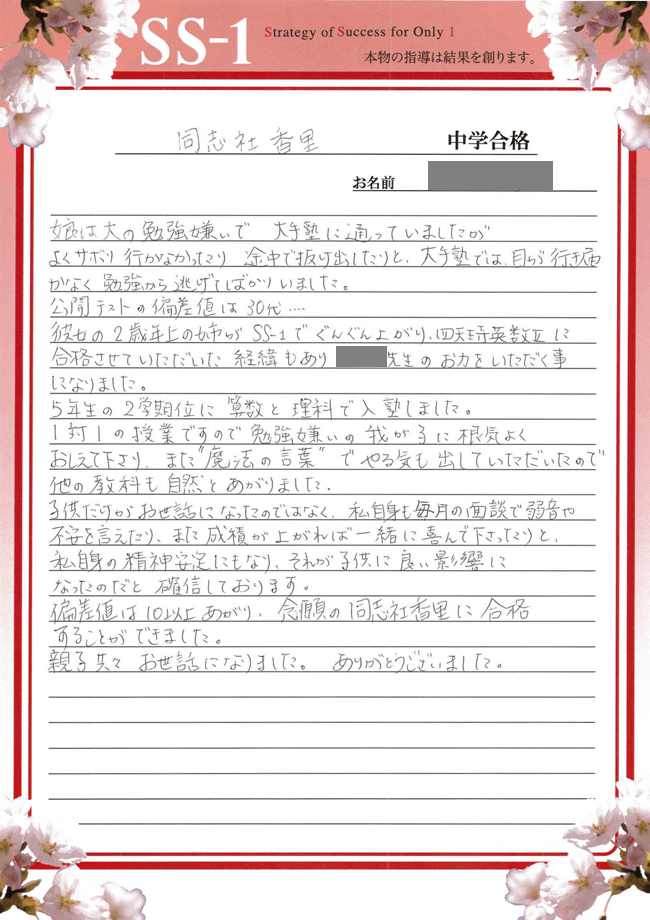 SS-1
Strategy of Success for Only 1
本物の指導は結果を創ります。
同志社香里 中学合格
お名前
娘は大の勉強嫌いで 大手塾に通っていましたが
よくサボり行かなかったり 途中で抜け出したりと、大手塾では、目が行き届
かなく勉強から逃げてばかりいました。
公開テストの偏差値は30代‥‥
彼女の2歳年上の姉がSS-1でぐんぐん上がり、四天王寺英数Ⅱに
合格させていただいた経緯もあり 先生のお力をいただく事
になりました。
5年生の2学期位に算数と理科で入塾しました。
1対1の授業ですので勉強嫌いの我が子に根気よく
おしえて下さり、また"魔法の言葉"でやる気も出していただいたので
他の教科も自然とあがりました。
子供だけがお世話になったのではなく、私自身も毎月の面談で弱音や
不安を言えたり、また成績が上がれば一緒に喜んで下さったりと、
私自身の精神安定にもなり、それが子供に良い影響に
なったのだと確信しております。
偏差値は10以上あがり、念願の同志社香里に合格
することができました。
親子共々 お世話になりました。 ありがとうございました。